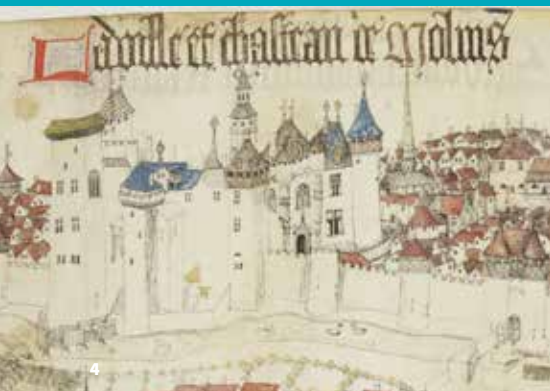 La ville et chasteau de Molins
4